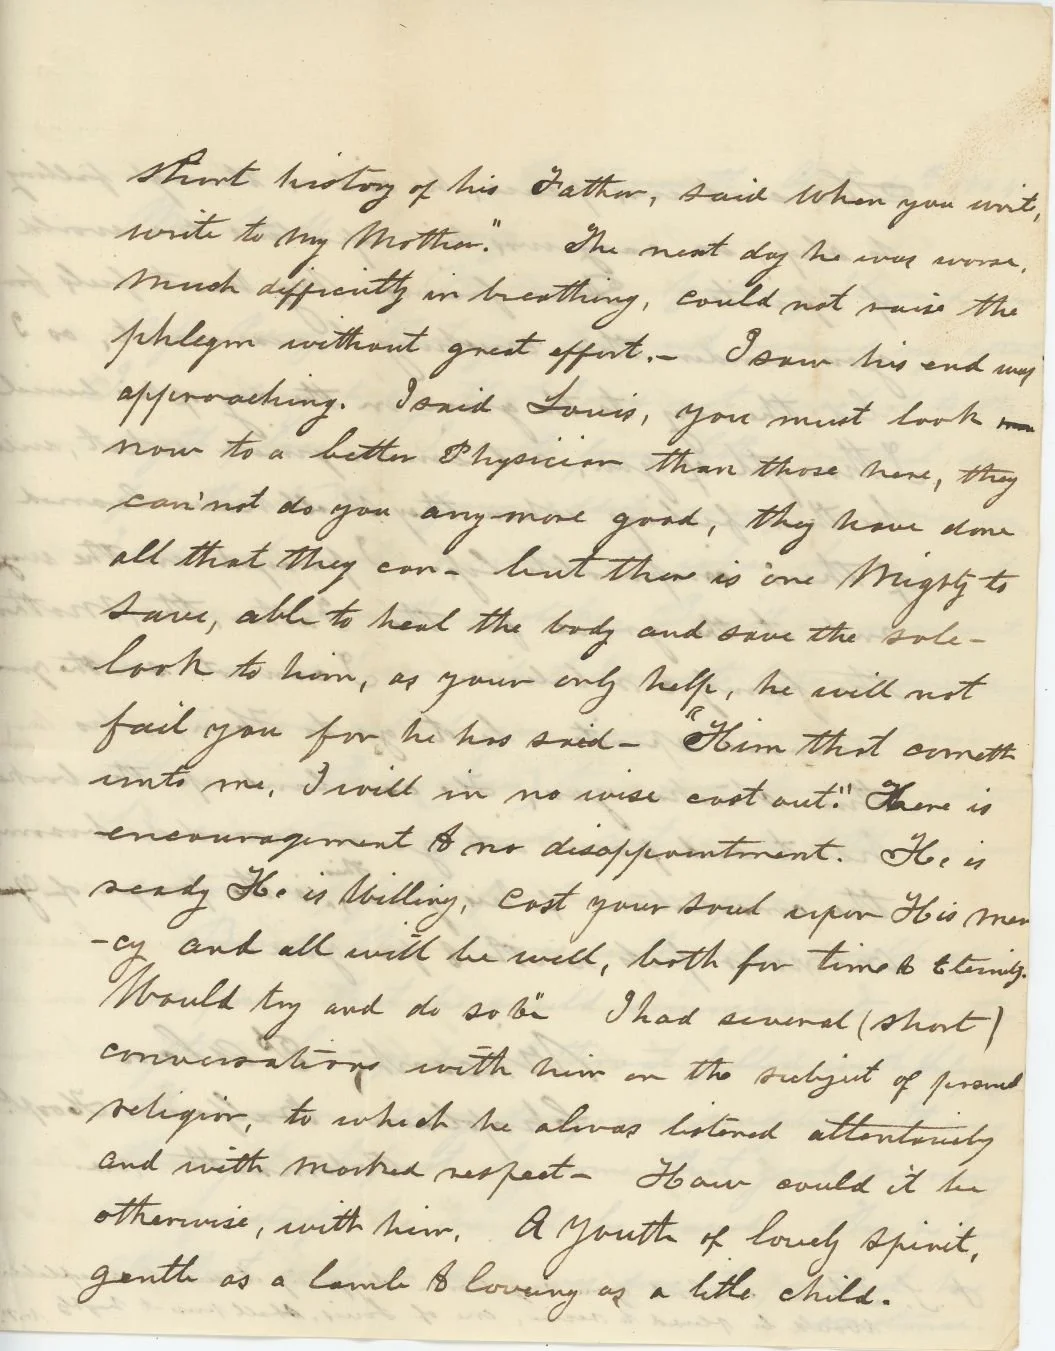 short history of his Father, said when you write,
write to my Mother." The next day he was worse.
Much difficulty in breathing, could not raise the
phlegm without great effort.- I saw his end was
approaching. I said Louis, you must look
now to a better Physician than those here, they
can'not do you any more good, they have done
all that they can- but there is one Mighty to
save, able to heal the body and save the sole-
look to him, as your only help, he will not
fail you for he has said- "Him that cometh
unto me, I will in no wise cast out." Here is
encouragement & no disappointment. He is
ready He is Willing, Cast your soul upon His mer
-cy and all will be well, both for time & Eternity.
Would try and do so I had several (short)
conversations with him on the subject of personal
religion, to which he alwas listened attentively
and with marked respect- How could it be
otherwise, with him. A youth of lovely spirit,
gentle as a lamb & loveing as a little child.